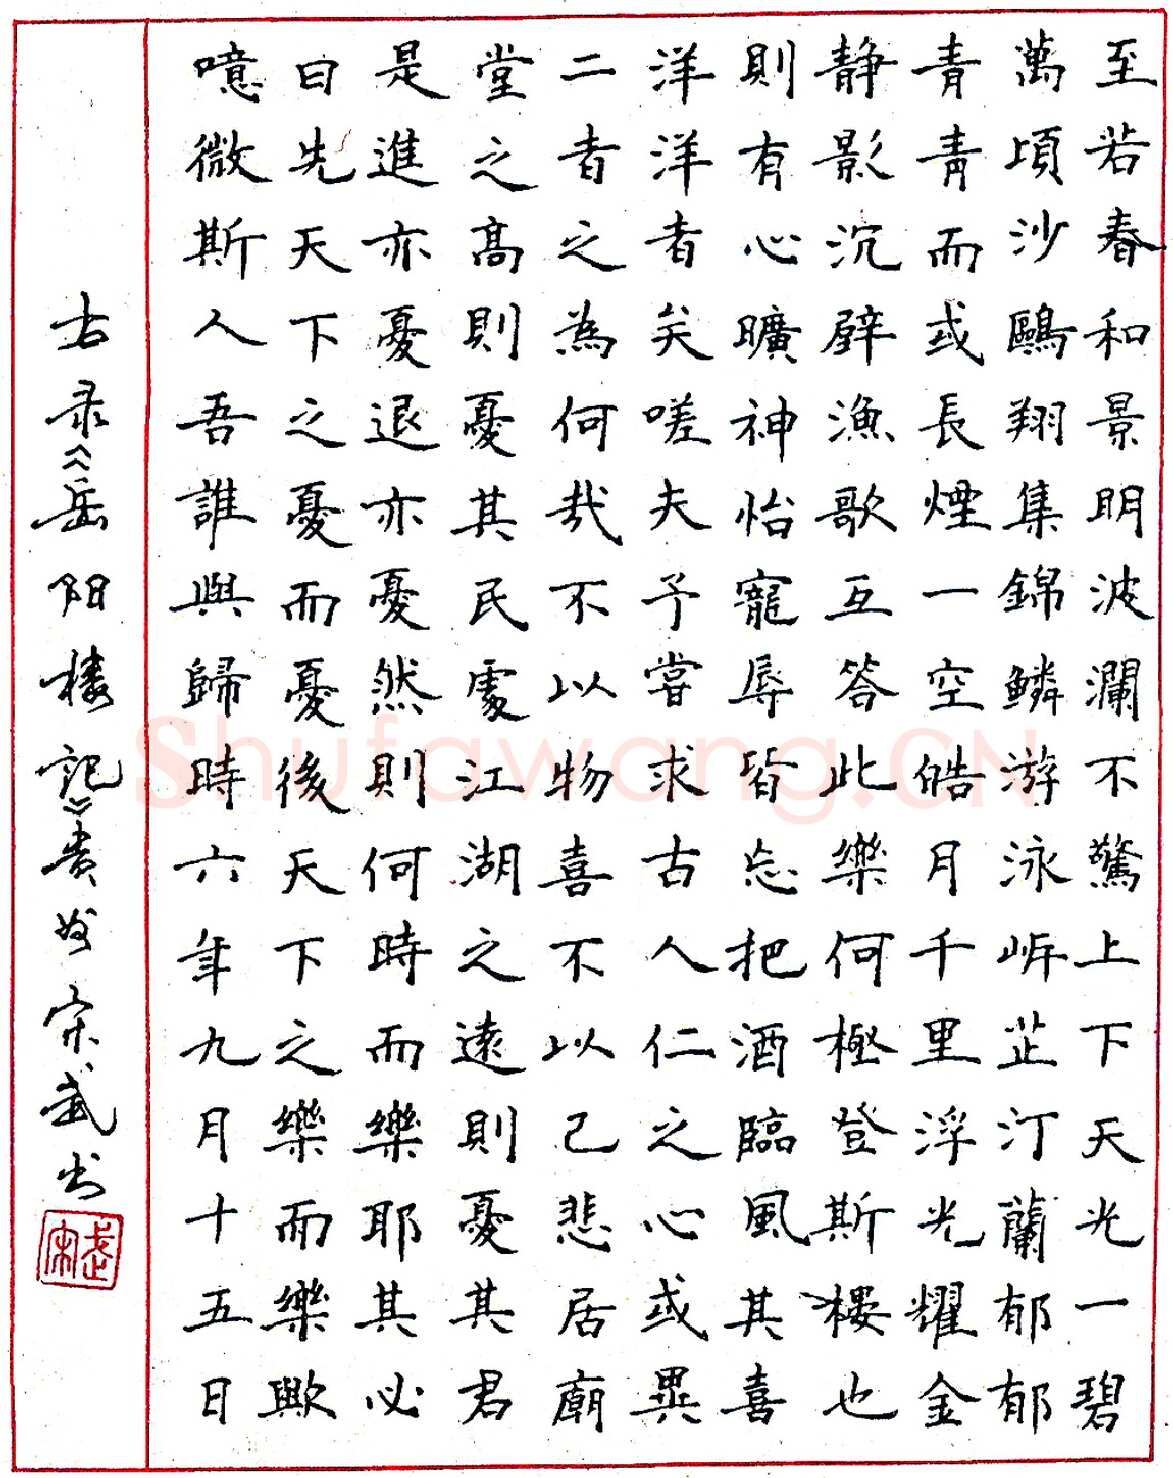 至若春和景明波瀾不驚上下天光一碧
萬頃沙鷗翔集錦鱗游泳岍芷汀蘭郁郁
青青而或長煙一空皓月千里浮光耀金
静影沉壁漁歌互答此樂何極登斯樓也
則有心曠神怡寵辱皆忘把酒臨風其喜
洋洋者矣嗟夫予嘗求古人仁之心或異
二者之為何哉不以物喜不以己悲居廟
堂之高則憂其民處江湖之遠則憂其君
是進亦憂退亦憂然則何時而樂耶其必
曰先天下之憂而憂後天下之樂而樂歟
噫微斯人吾誰與歸時六年九月十五日
右录《岳阳楼记》贵州宋武书
宋武
Shufawang.CN